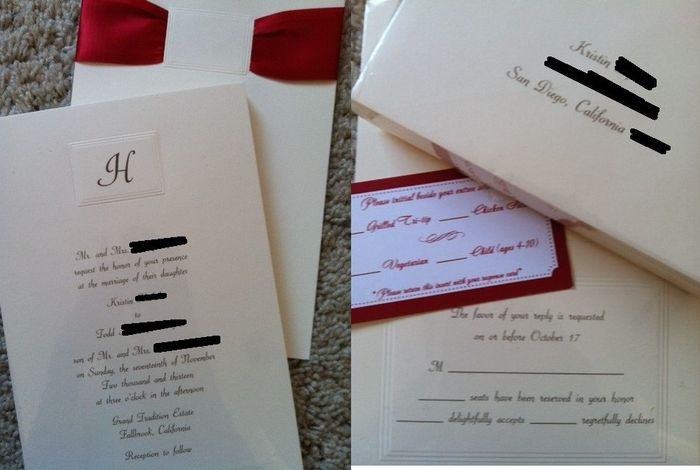 H
Mr. and Mrs.
request the honor of your presence
at the marriage of their daughter
Kristin
to
Todd
son of Mr. and Mrs.
on Sunday, the seventeenth of November
Two thousand and thirteen
at three o'clock in the afternoon
Grand Tradition Estate
Fallbrook, California
Reception to follow
Kristin
San Diego, California
(Please initial beside your entree
Grilled Tri-tip ____ Chicken
Vegetarian ____ Child (ages 4-10)
*Please return this insert with your response card*
The favor of your reply is requested
on or before October 17
M
____ seats have been reserved in your honor
____ delightfully accepts ____ regretfully declines